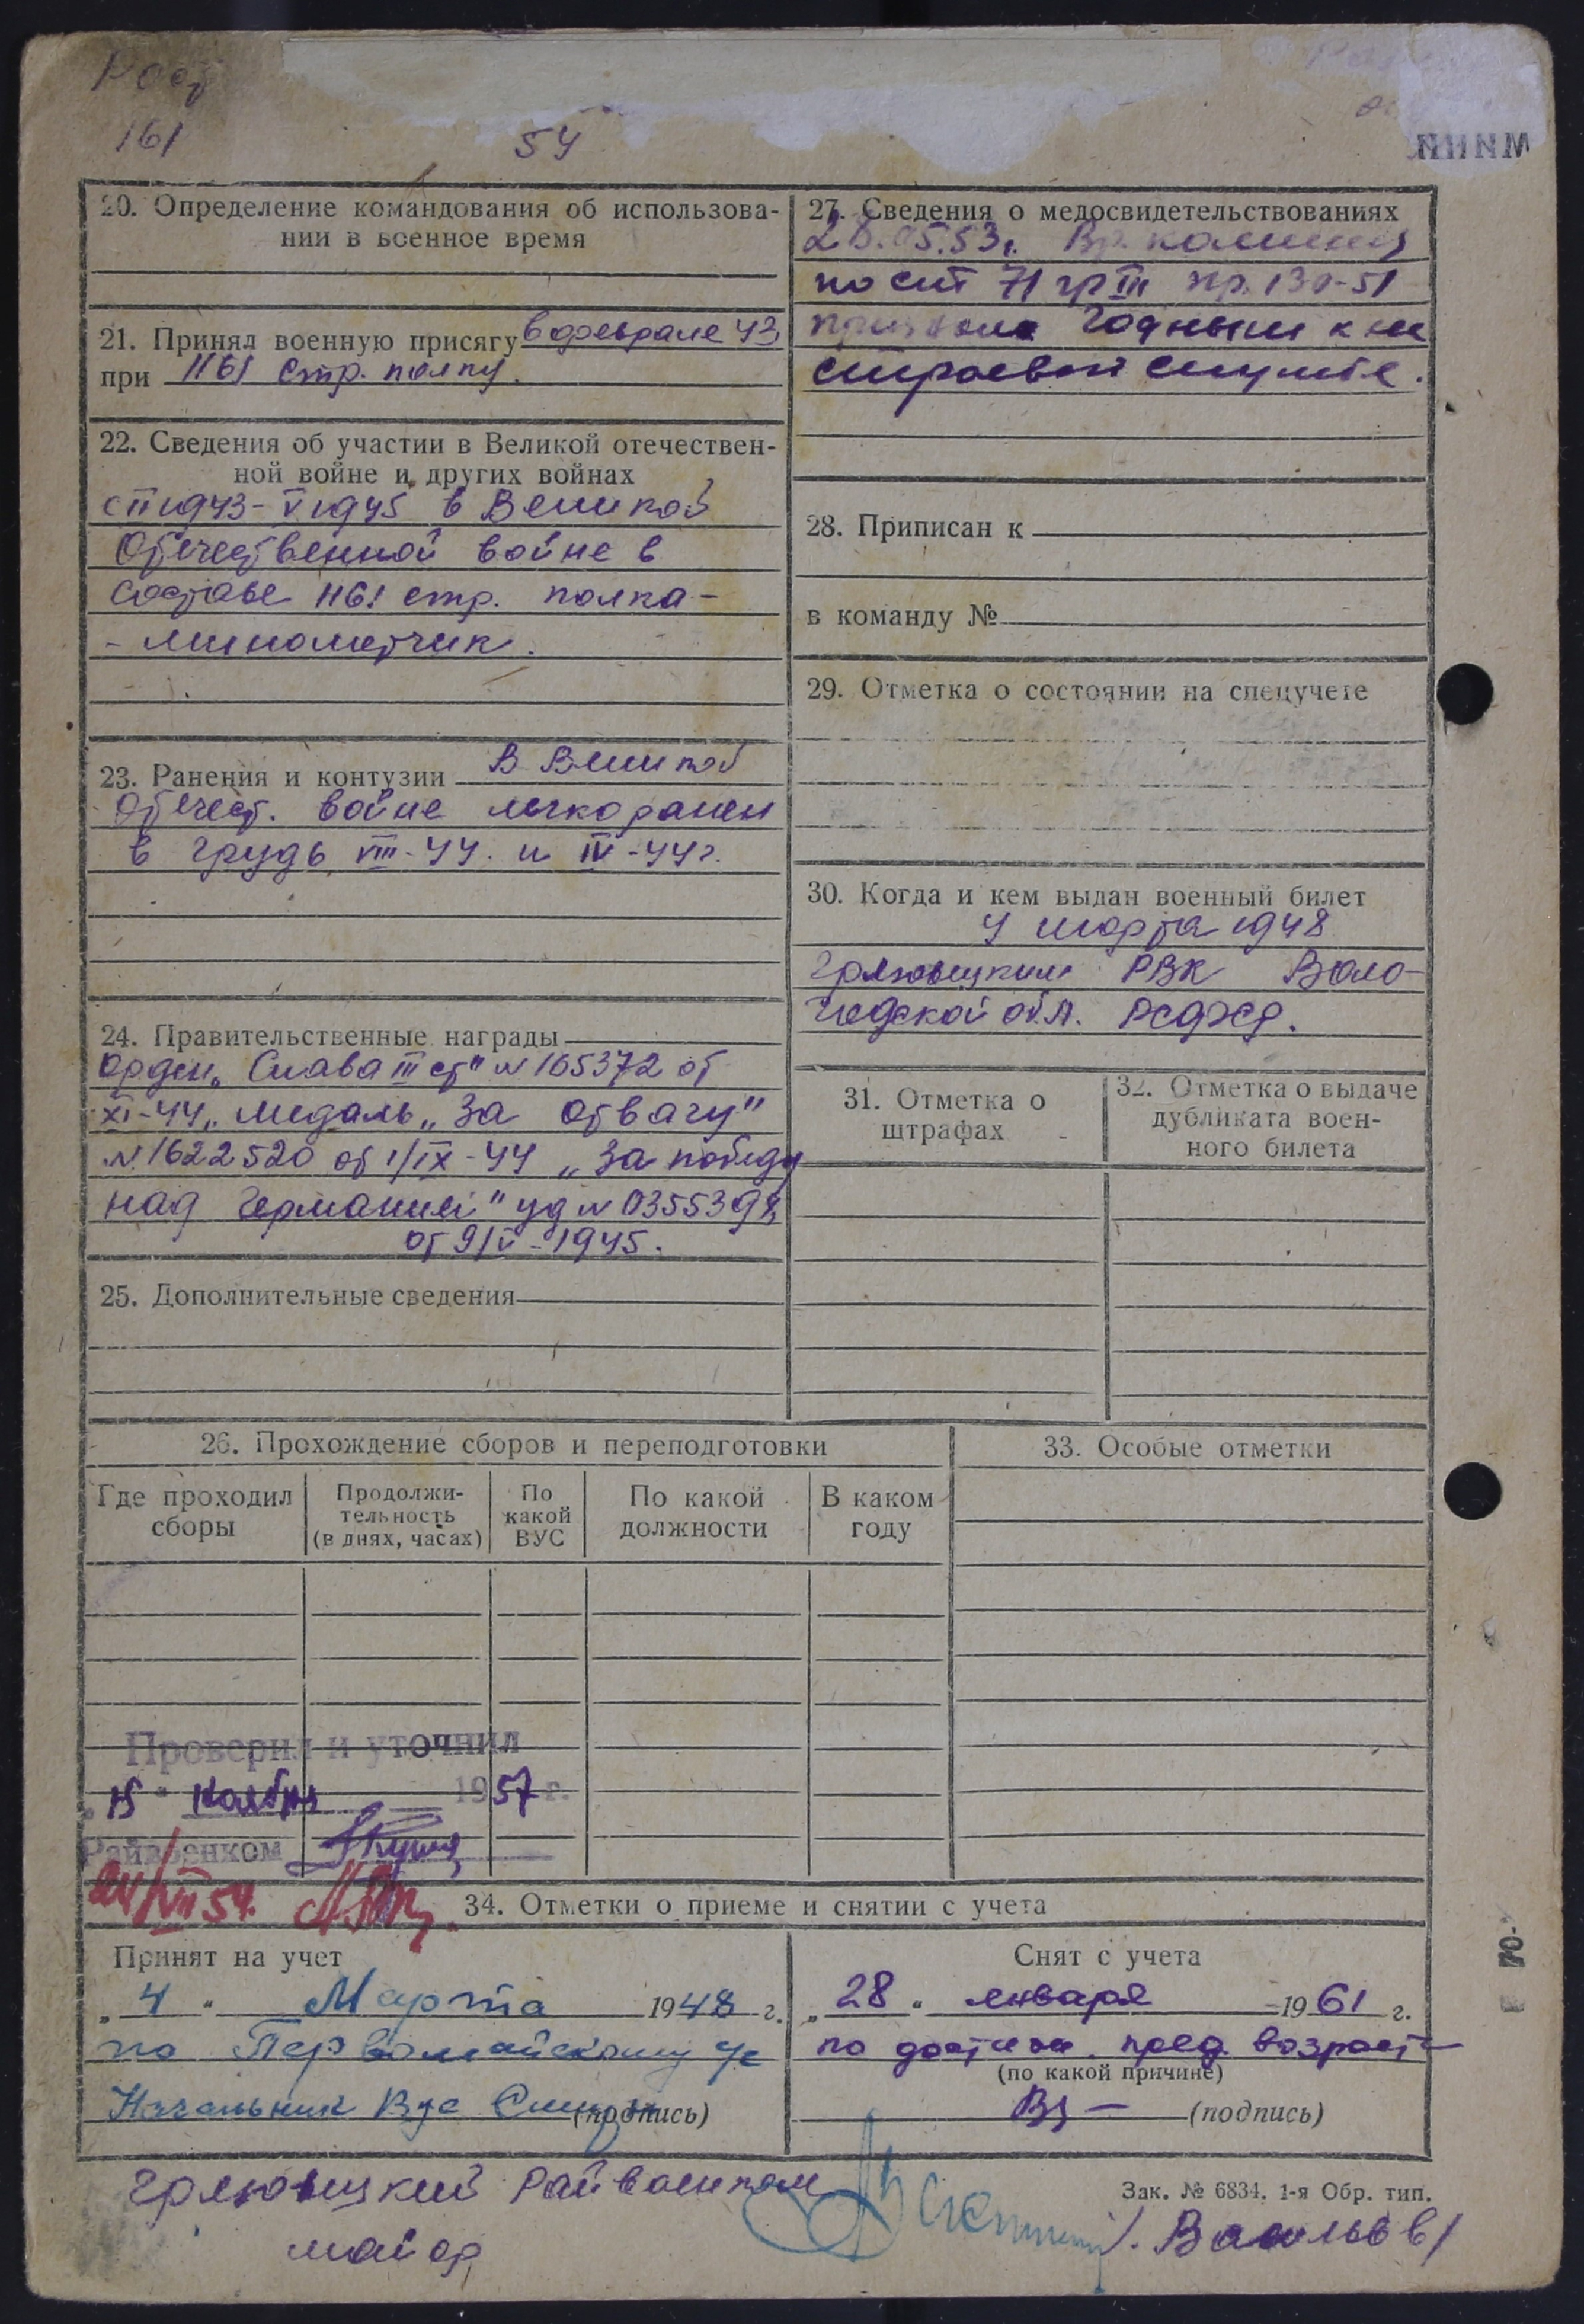 Рост
161
54
20. Определение командования об использова-
нии в военное время
21. Принял военную присягу в феврале 43
при 1161 Стр. полку.
22. Сведения об участии в Великой отечествен-
ной войне и других войнах
с II 1943 - V 1945 в Великой
Отечественной войне в
составе 1161 стр. полка -
- минометчик.
23. Ранения и контузии В Великой
Отечест. войне легко ранен
в грудь VIII-44. и IV-44 г.
24. Правительственные награды
Орден „Слава III ст" N 165372 от
XI-44 „ медаль „За отвагу"
N 1622520 от 1/IX-44 „За победу
над Германией" уд N 0355398
от 9/V-1945.
25. Дополнительные сведения
26. Прохождение сборов и переподготовки
Где проходил сборы
Продолжи-
тельность
(в днях, часах)
По какой ВУС
По какой должности
В каком году
Проверил и уточнил
„15" ноября 1957 г.
Райвоенком
24/VII 54.
27. Сведения о медосвидетельствованиях
28.05.53 г. Вр. комиссия
по ст 71 гр III пр. 130-51
признана годным к не
строевой службе.
28. Приписан к
в команду №
29. Отметка о состоянии на спецучете
30. Когда и кем выдан военный билет
4 марта 1948
Грязовецким РВК Воло-
годской обл. РСФСР.
31. Отметка о
штрафах
32. Отметка о выдаче
дубликата воен-
ного билета
33. Особые отметки
34. Отметки о приеме и снятии с учета
Принят на учет
„4" Марта 1948 г.
по Первомайскому
Начальник Вус (подпись)
Снят с учета
„28" января 1961 г.
по достиж. пред. возраста
(по какой причине)
(подпись)
Грязовецкий Райвоенком
майор
/. Васильев/
Зак. № 6834. 1-я Обр. тип.